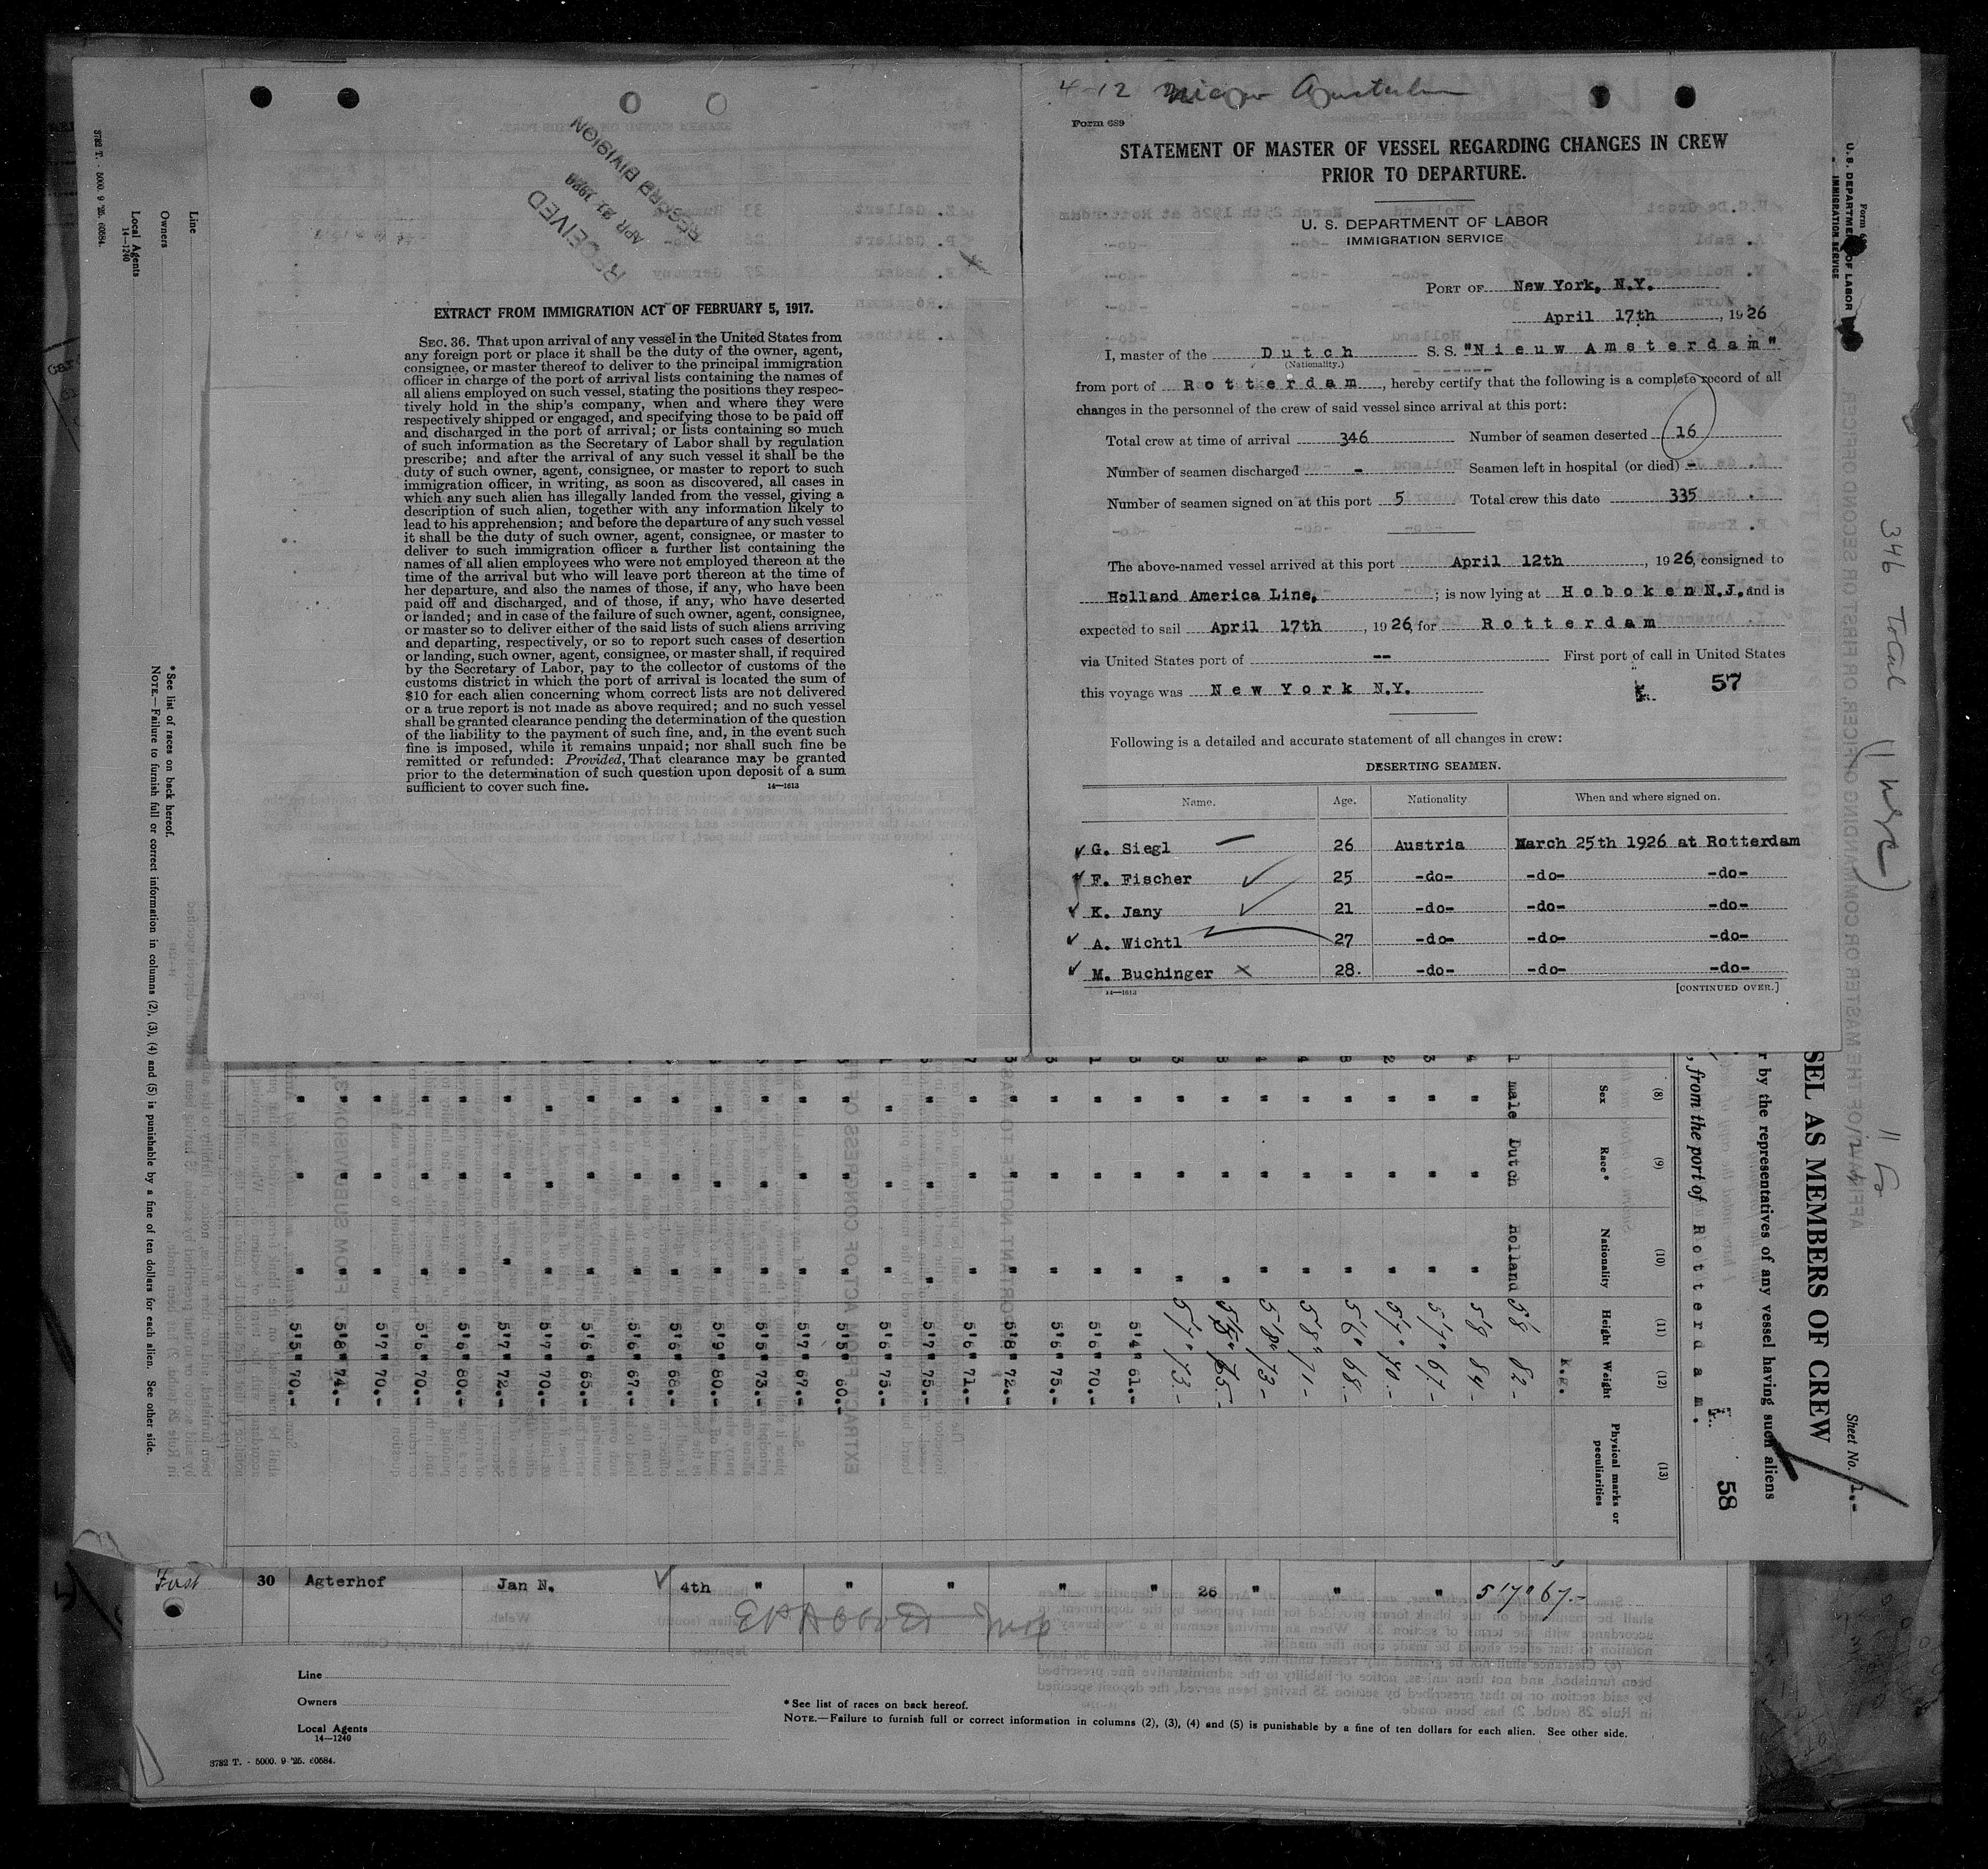 4-12 Nieuw Amsterdam
Form 689
STATEMENT OF MASTER OF VESSEL REGARDING CHANGES IN CREW
PRIOR TO DEPARTURE.
U. S. DEPARTMENT OF LABOR
IMMIGRATION SERVICE
PORT OF New York, N.Y.
April 17th, 1926
I, master of the Dutch S. S. "Nieuw Amsterdam"
(Nationality.)
from port of Rotterdam, hereby certify that the following is a complete record of all
changes in the personnel of the crew of said vessel since arrival at this port:
Total crew at time of arrival 346 Number of seamen deserted 16
Number of seamen discharged - Seamen left in hospital (or died) -
Number of seamen signed on at this port 5 Total crew this date 335
The above-named vessel arrived at this port April 12th, 1926, consigned to
Holland America Line, ; is now lying at Hoboken N.J. and is
expected to sail April 17th, 1926, for Rotterdam
via United States port of -- First port of call in United States
this voyage was New York N.Y.
57
Following is a detailed and accurate statement of all changes in crew:
DESERTING SEAMEN.
Name. Age. Nationality When and where signed on.
G. Siegl 26 Austria March 25th 1926 at Rotterdam
F. Fischer 25 -do- -do- -do-
K. Jany 21 -do- -do- -do-
A. Wichtl 27 -do- -do- -do-
M. Buchinger 28. -do- -do- -do-
14—1613
[CONTINUED OVER.]
RECEIVED
APR 21 1926
RECORD DIVISION
EXTRACT FROM IMMIGRATION ACT OF FEBRUARY 5, 1917.
SEC. 36. That upon arrival of any vessel in the United States from
any foreign port or place it shall be the duty of the owner, agent,
consignee, or master thereof to deliver to the principal immigration
officer in charge of the port of arrival lists containing the names of
all aliens employed on such vessel, stating the positions they respec-
tively hold in the ship's company, when and where they were
respectively shipped or engaged, and specifying those to be paid off
and discharged in the port of arrival; or lists containing so much
of such information as the Secretary of Labor shall by regulation
prescribe; and after the arrival of any such vessel it shall be the
duty of such owner, agent, consignee, or master to report to such
immigration officer, in writing, as soon as discovered, all cases in
which any such alien has illegally landed from the vessel, giving a
description of such alien, together with any information likely to
lead to his apprehension; and before the departure of any such vessel
it shall be the duty of such owner, agent, consignee, or master to
deliver to such immigration officer a further list containing the
names of all alien employees who were not employed thereon at the
time of the arrival but who will leave port thereon at the time of
her departure, and also the names of those, if any, who have been
paid off and discharged, and of those, if any, who have deserted
or landed; and in case of the failure of such owner, agent, consignee,
or master so to deliver either of the said lists of such aliens arriving
and departing, respectively, or so to report such cases of desertion
or landing, such owner, agent, consignee, or master shall, if required
by the Secretary of Labor, pay to the collector of customs of the
customs district in which the port of arrival is located the sum of
$10 for each alien concerning whom correct lists are not delivered
or a true report is not made as above required; and no such vessel
shall be granted clearance pending the determination of the question
of the liability to the payment of such fine, and, in the event such
fine is imposed, while it remains unpaid; nor shall such fine be
remitted or refunded: Provided, That clearance may be granted
prior to the determination of such question upon deposit of a sum
sufficient to cover such fine.
14—1613
U. S. DEPARTMENT OF LABOR
IMMIGRATION SERVICE
346 Total
Sheet No. 1.-
SEL AS MEMBERS OF CREW
r by the representatives of any vessel having such aliens
, from the port of Rotterdam.
58
(8) (9) (10) (11) (12) (13)
Sex Race* Nationality Height Weight Physical marks or peculiarities
k.g.
male Dutch Holland 5'8 82-
" " " 5'8 84-
" " " 5'7" 67-
" " " 5'7" 70.-
" " " 5'6" 68.-
" " " 5'8" 71-
" " " 5'8" 73-
" " " 5'5" 65.-
" " " 5'7" 73.-
" " " 5'4" 61.-
" " " 5'6" 70.-
" " " 5'6" 75.-
" " " 5'8" 72.-
" " " 5'6" 71.-
" " " 5'7" 75.-
" " " 5'6" 75.-
" " " 5'5" 60.-
" " " 5'7" 67.-
" " " 5'5" 73.-
" " " 5'9" 80.-
" " " 5'6" 68.-
" " " 5'6" 67.-
" " " 5'6" 65.-
" " " 5'7" 70.-
" " " 5'7" 72.-
" " " 5'6" 80.-
" " " 5'6" 70.-
" " " 5'7" 70.-
" " " 5'8" 74.-
" " " 5'5" 70.-
*See list of races on back hereof.
NOTE.—Failure to furnish full or correct information in columns (2), (3), (4) and (5) is punishable by a fine of ten dollars for each alien. See other side.
Line
Owners
Local Agents
14—1240
3782 T. - 5000. 9-'25. 60584.
First 30 Agterhof Jan N. 4th " " " " " 26 " " " 5'7" 67.-
Line
Owners
Local Agents
14—1240
*See list of races on back hereof.
NOTE.—Failure to furnish full or correct information in columns (2), (3), (4) and (5) is punishable by a fine of ten dollars for each alien. See other side.
3782 T. - 5000. 9-'25. 60584.